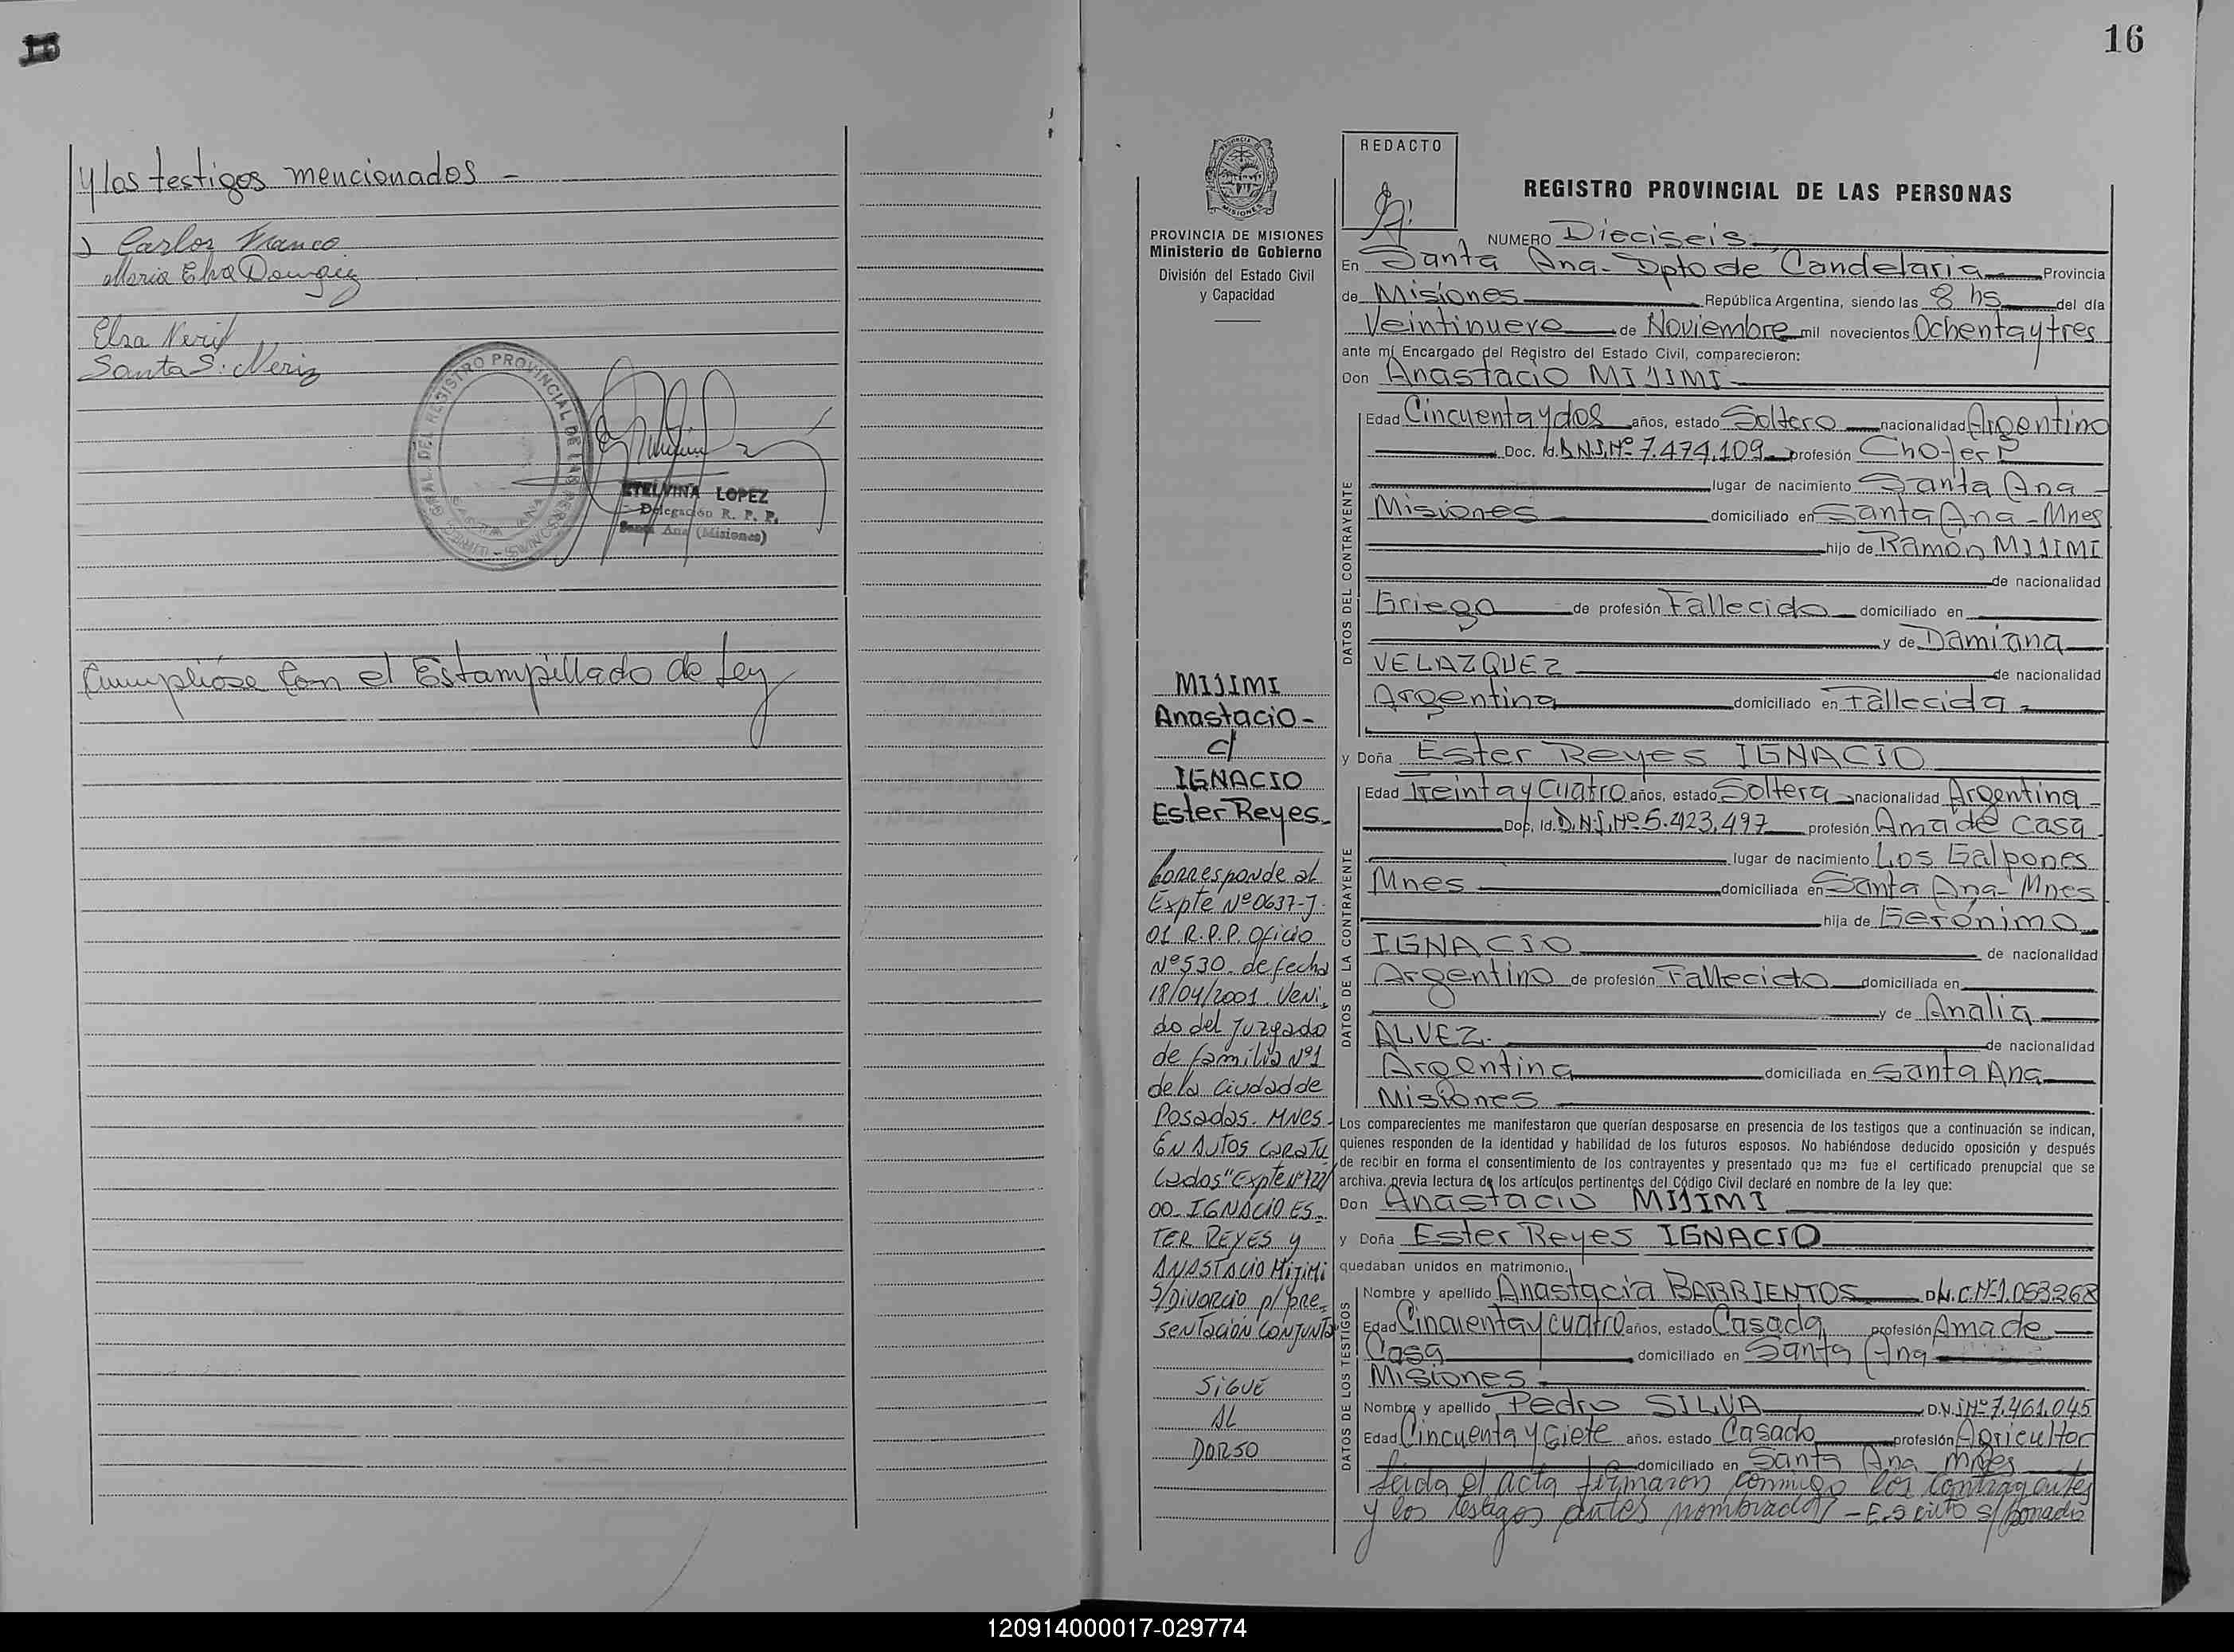 y los testigos mencionados -
Carlos Franco
Elsa Neriz
Santa S. Neriz
ETELVINA LOPEZ
Delegación R. P. P.
Santa Ana (Misiones)
Cumplióse Con el Estampillado de Ley
16
PROVINCIA DE MISIONES
Ministerio de Gobierno
División del Estado Civil
y Capacidad
MIJIMI
Anastacio -
c/
IGNACIO
Ester Reyes -
Corresponde al
Expte Nº 0637-J-
01 R.P.P. Oficio
Nº 530 de fecha
18/04/2001. Veni-
do del Juzgado
de familia Nº1
de la Ciudad de
Posadas. MNes -
EN AUTOS CARATU
Lados "Expte Nº 122/
00 - IGNACIO ES-
TER REYES y
ANASTACIO MIJIMI
S/DIVORCIO p/ pre-
SENTACIÓN CONJUNTA
SIGUE
AL
DORSO
REDACTO
REGISTRO PROVINCIAL DE LAS PERSONAS
NUMERO Dieciseis
En Santa Ana - Dpto de Candelaria Provincia
de Misiones República Argentina, siendo las 8 hs del día
Veintinueve de Noviembre mil novecientos Ochenta y tres
ante mí Encargado del Registro del Estado Civil, comparecieron:
Don Anastacio MIJIMI
DATOS DEL CONTRAYENTE
Edad Cincuenta y dos años, estado Soltero nacionalidad Argentino
Doc. Id. D.N.I. Nº 7.474.109 profesión Chofer
lugar de nacimiento Santa Ana -
Misiones domiciliado en Santa Ana - Mnes
hijo de Ramón MIJIMI
de nacionalidad
Griego de profesión Fallecido domiciliado en
y de Damiana
VELAZQUEZ de nacionalidad
Argentina domiciliado en Fallecida -
y Doña Ester Reyes IGNACIO
DATOS DE LA CONTRAYENTE
Edad Treinta y Cuatro años, estado Soltera nacionalidad Argentina -
Doc. Id. D.N.I. Nº 5.423.497 profesión Ama de casa
lugar de nacimiento Los Galpones
Mnes domiciliada en Santa Ana - Mnes
hija de Gerónimo
IGNACIO de nacionalidad
Argentino de profesión Fallecido domiciliada en
y de Analia
ALVEZ. de nacionalidad
Argentina domiciliada en Santa Ana
Misiones
Los comparecientes me manifestaron que querían desposarse en presencia de los testigos que a continuación se indican,
quienes responden de la identidad y habilidad de los futuros esposos. No habiéndose deducido oposición y después
de recibir en forma el consentimiento de los contrayentes y presentado que me fue el certificado prenupcial que se
archiva. previa lectura de los artículos pertinentes del Código Civil declaré en nombre de la ley que:
Don Anastacio MIJIMI
y Doña Ester Reyes IGNACIO
quedaban unidos en matrimonio.
DATOS DE LOS TESTIGOS
Nombre y apellido Anastacia BARRIENTOS
Edad Cincuenta y cuatro años, estado Casada profesión Ama de
Casa domiciliado en Santa Ana
Misiones
Nombre y apellido Pedro SILVA D.N.I Nº 7.461.045
Edad Cincuenta y Siete años. estado Casado profesión Agricultor
domiciliado en Santa Ana Mnes
Leida el acta firmaron conmigo los Contrayentes
y los testigos antes nombrados -
120914000017-029774